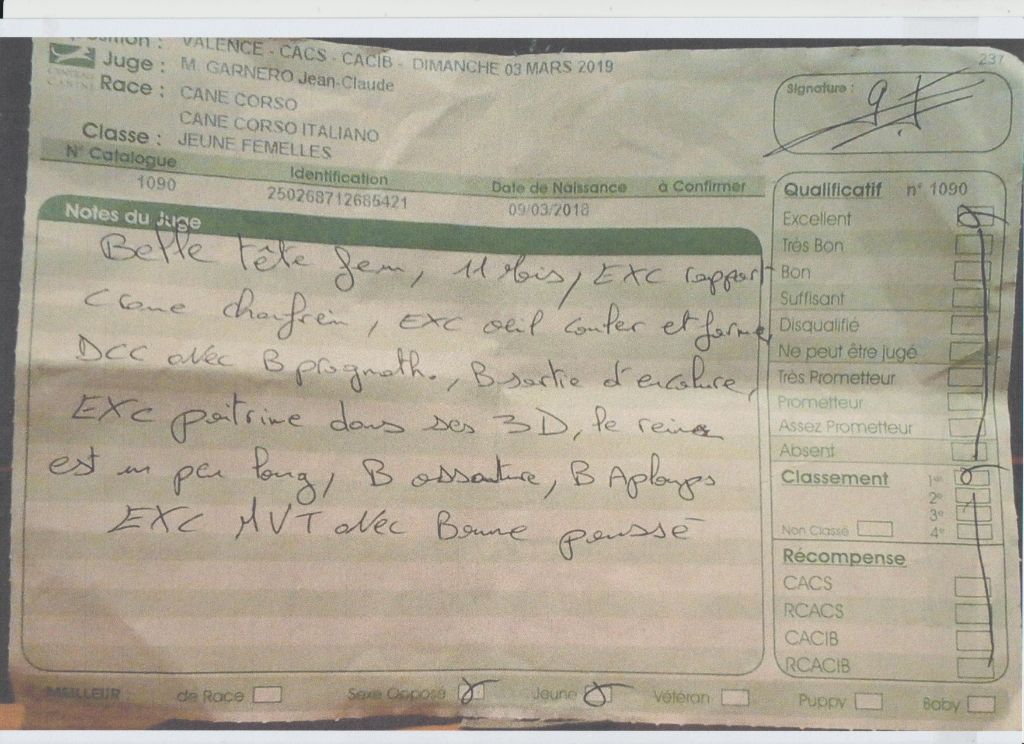 237
VALENCE - CACS - CACIB - DIMANCHE 03 MARS 2019
Juge : M. GARNERO Jean-Claude
Race : CANE CORSO
CANE CORSO ITALIANO
Classe : JEUNE FEMELLES
N° Catalogue Identification Date de Naissance à Confirmer
1090 250268712685421 09/03/2018
Signature :
Notes du Juge
Belle tête fem, 11 Mois, EXC rapport
Crane chanfrein, EXC oeil couler et forme,
DCC avec B prognath., B sortie d'encolure,
EXC poitrine dans ses 3D, le rein
est un peu long, B ossature, B Aplomps
EXC MVT avec Bonne poussé
Qualificatif n° 1090
Excellent
Très Bon
Bon
Suffisant
Disqualifié
Ne peut être jugé
Très Prometteur
Prometteur
Assez Prometteur
Absent
Classement 1er
2e
3e
Non Classé 4e
Récompense
CACS
RCACS
CACIB
RCACIB
MEILLEUR : de Race Sexe Opposé Jeune Vétéran Puppy Baby